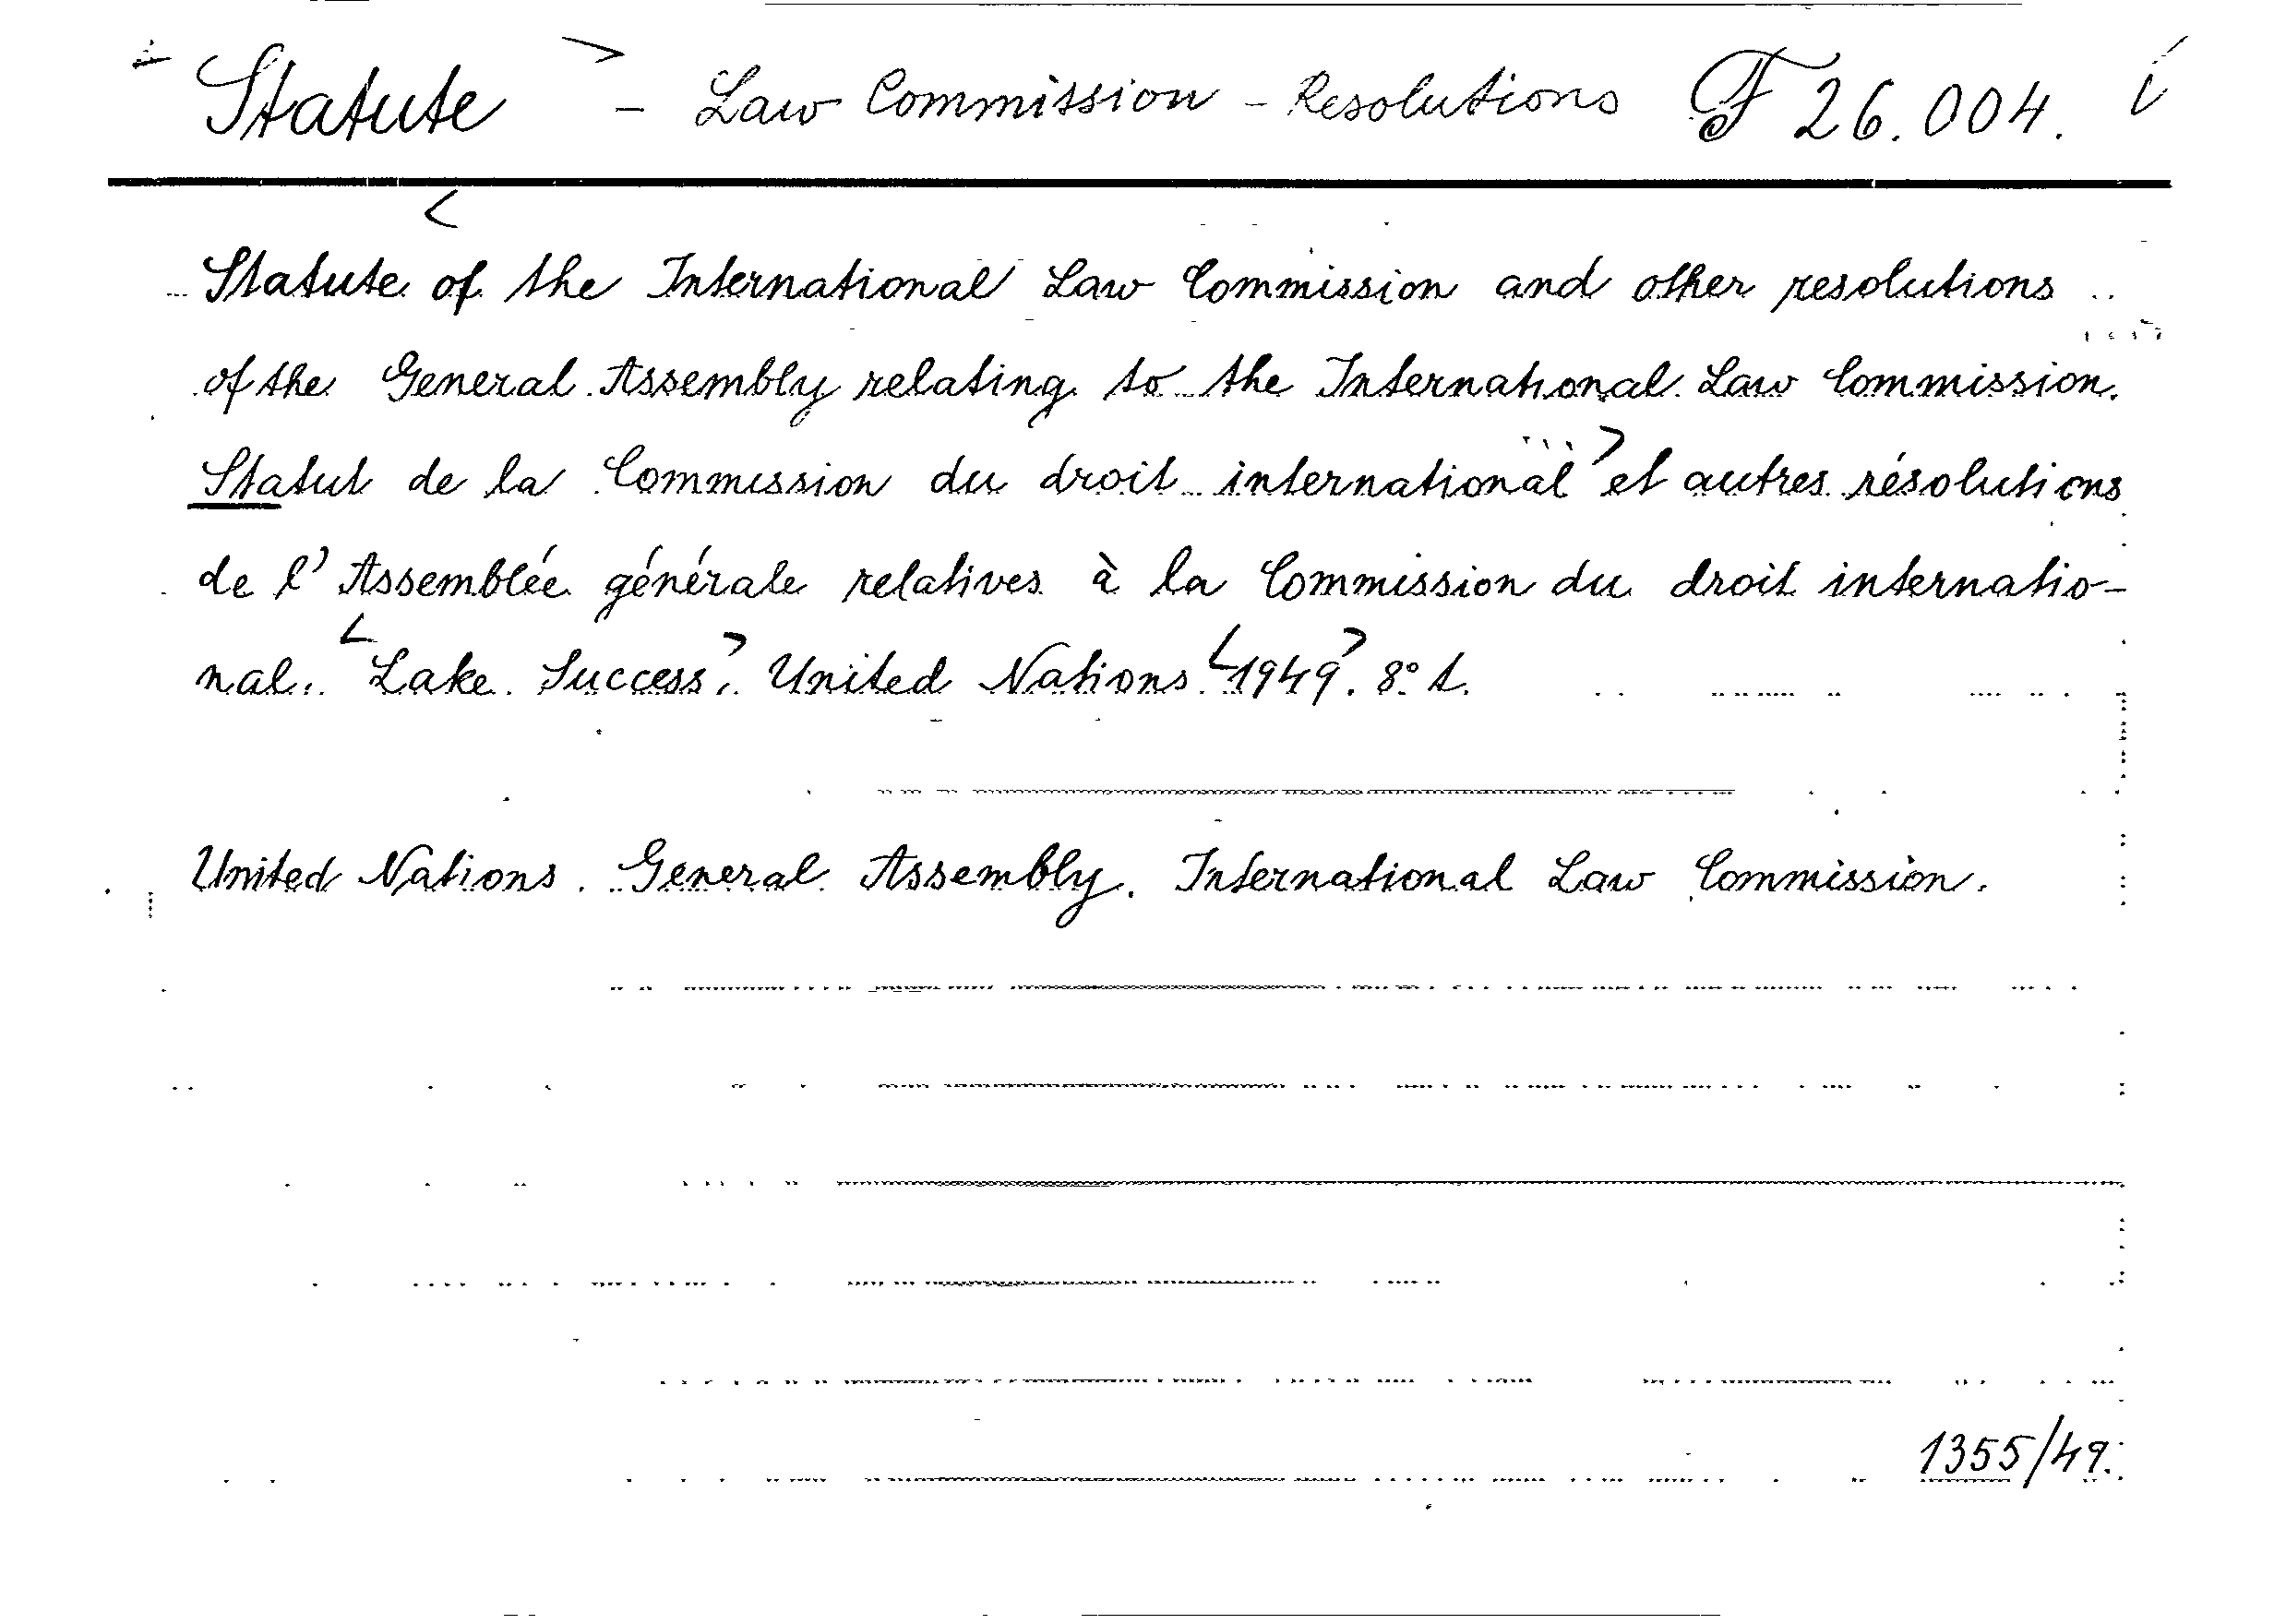 Statute - Law Commission - Resolutions F 26.004.
Statute of the International Law Commission and other resolutions
of the General Assembly relating to the International Law Commission.
Statut de la Commission du droit international et autres résolutions
de l'Assemblée générale relatives à la Commission du droit internatio-
nal. Lake Success, United Nations 1949. 8° t.
United Nations. General Assembly. International Law Commission.
1355/49.